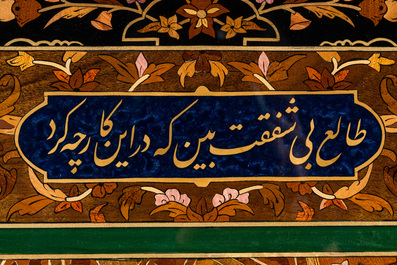 طالع بی شفقت بین که در این کار چه کرد